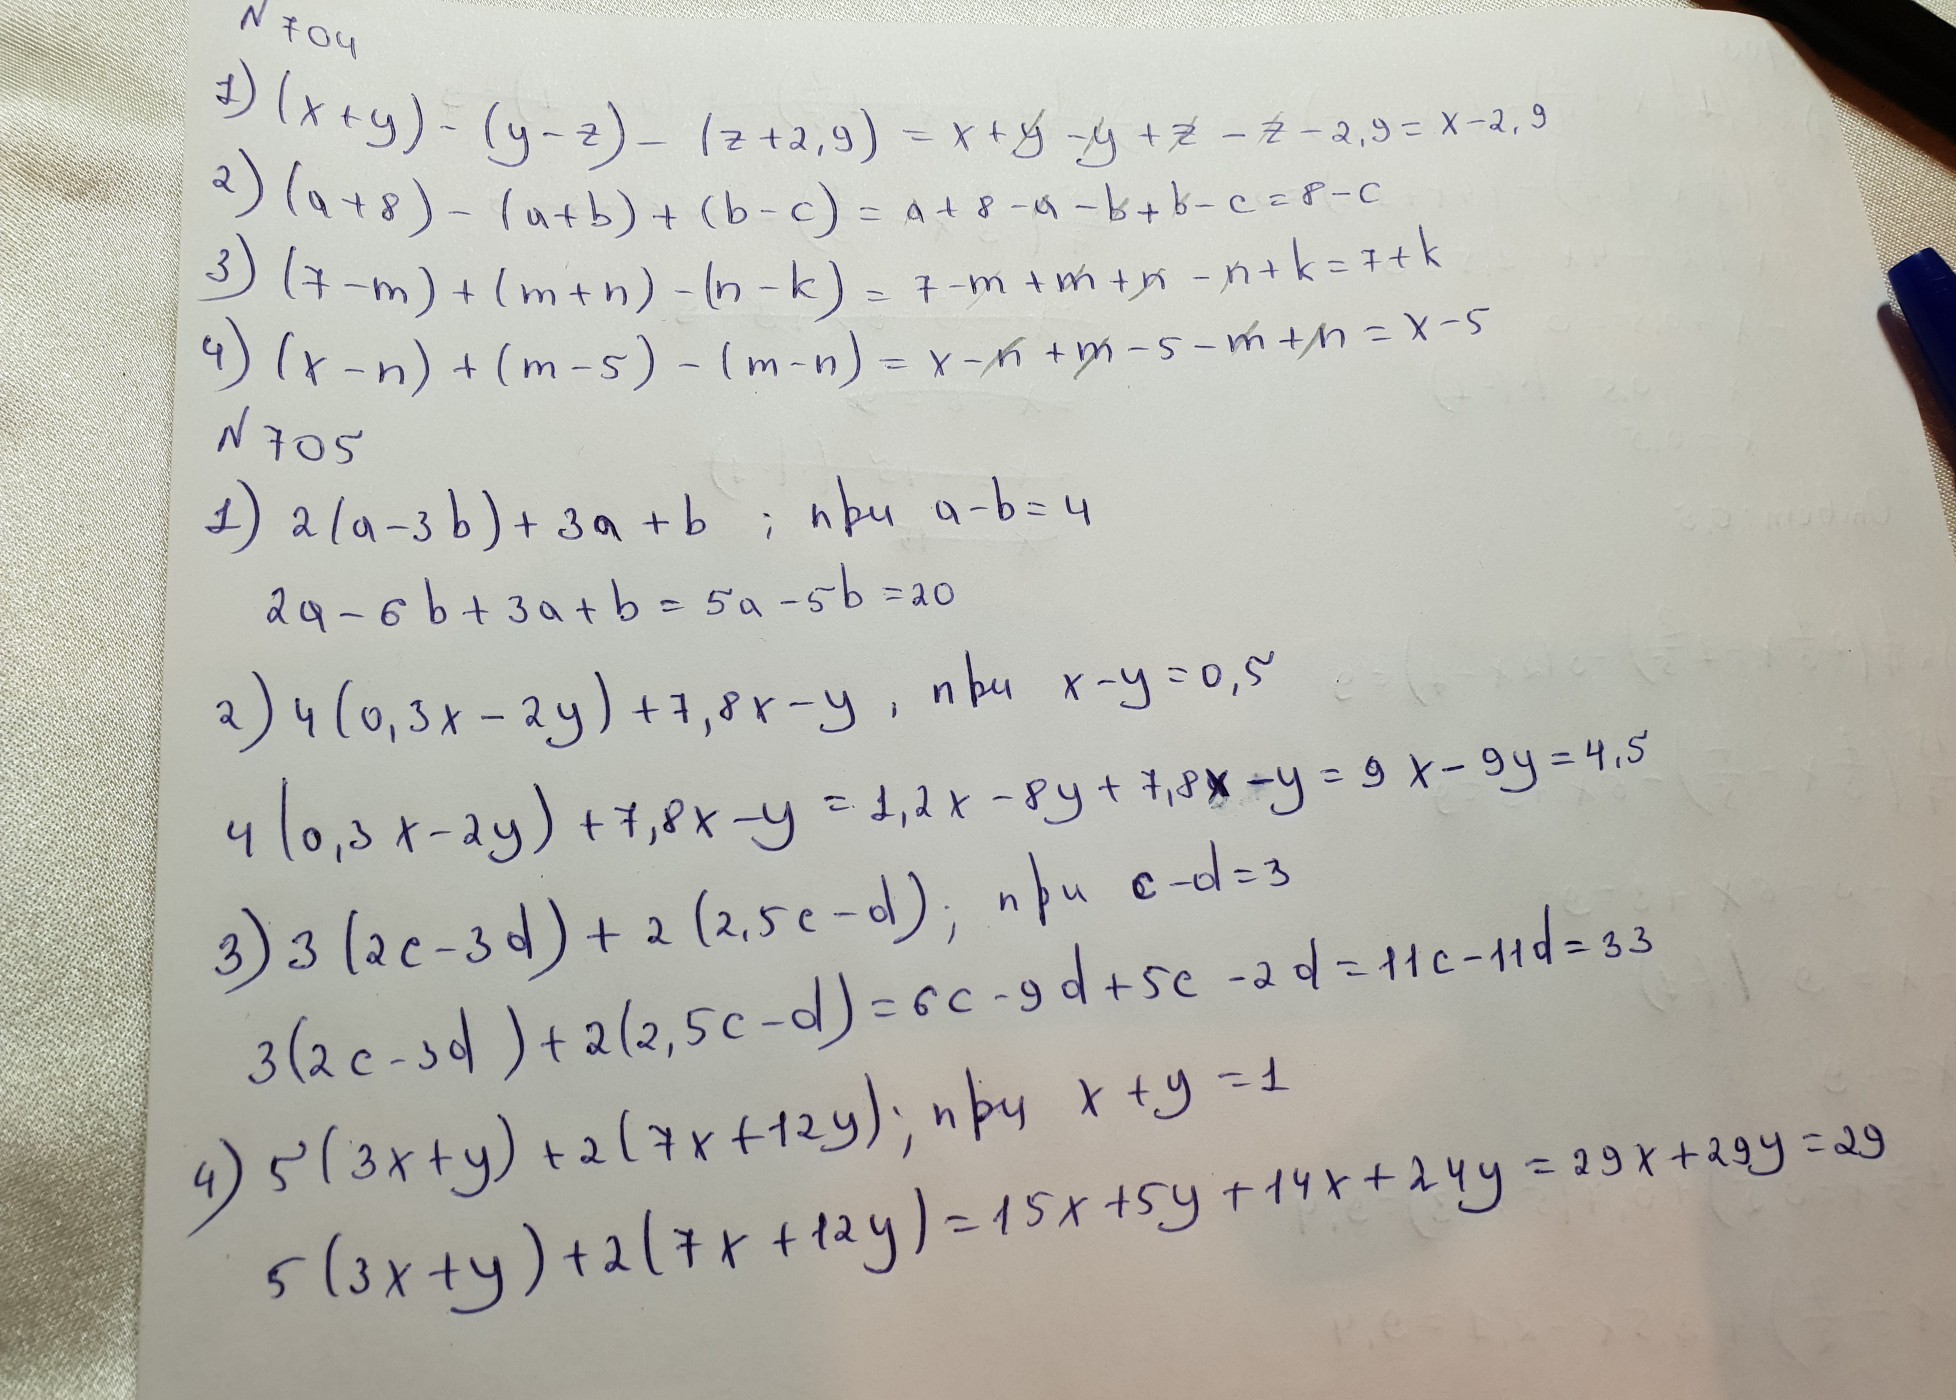 N 704
1) (x+y) - (y-z) - (z+2,9) = x+y-y+z-z-2,9 = x-2,9
2) (a+8) - (a+b) + (b-c) = a+8-a-b+b-c = 8-c
3) (7-m) + (m+n) - (n-k) = 7-m+m+n-n+k = 7+k
4) (x-n) + (m-5) - (m-n) = x-n+m-5-m+n = x-5
N 705
1) 2(a-3b) + 3a + b ; при a-b=4
2a-6b+3a+b = 5a-5b = 20
2) 4(0,3x-2y) + 7,8x-y , при x-y=0,5
4(0,3x-2y) + 7,8x-y = 1,2x-8y+7,8x-y = 9x-9y = 4,5
3) 3(2c-3d) + 2(2,5c-d) ; при c-d=3
3(2c-3d) + 2(2,5c-d) = 6c-9d+5c-2d = 11c-11d = 33
4) 5(3x+y) + 2(7x+12y) ; при x+y=1
5(3x+y) + 2(7x+12y) = 15x+5y+14x+24y = 29x+29y = 29